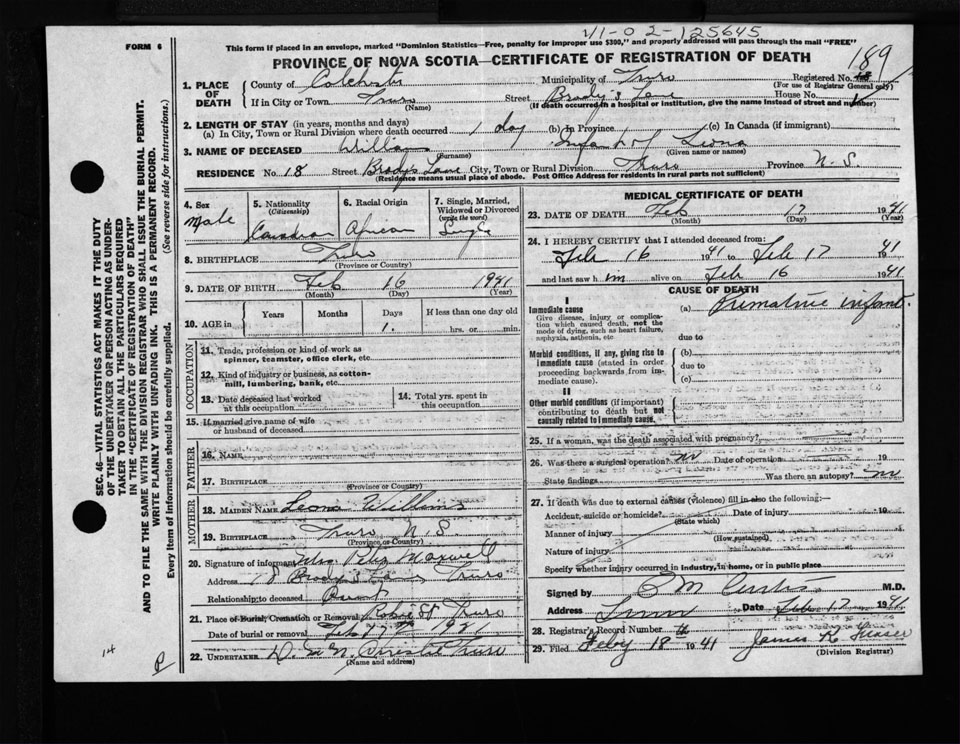 41-0 2-125645
FORM 6
This form if placed in an envelope, marked "Dominion Statistics—Free, penalty for improper use $300," and properly addressed will pass through the mail "FREE"
PROVINCE OF NOVA SCOTIA—CERTIFICATE OF REGISTRATION OF DEATH
189
1. PLACE OF DEATH
County of Colchester Municipality of Truro Registered No.
(For use of Registrar General only)
If in City or Town Truro Street Brody's Lane House No.
(Name) (If death occurred in a hospital or institution, give the name instead of street and number)
2. LENGTH OF STAY (in years, months and days)
(a) In City, Town or Rural Division where death occurred 1 day (b) In Province (c) In Canada (if immigrant)
3. NAME OF DECEASED Williams Infant of Leona
(Surname) (Given name or names)
RESIDENCE No. 18 Street Brodys Lane City, Town or Rural Division Truro Province N-S.
(Residence means usual place of abode. Post Office Address for residents in rural parts not sufficient)
SEC. 46—VITAL STATISTICS ACT MAKES IT THE DUTY
OF THE UNDERTAKER OR PERSON ACTING AS UNDER-
TAKER TO OBTAIN ALL THE PARTICULARS REQUIRED
IN THE "CERTIFICATE OF REGISTRATION OF DEATH"
AND TO FILE THE SAME WITH THE DIVISION REGISTRAR WHO SHALL ISSUE THE BURIAL PERMIT.
WRITE PLAINLY WITH UNFADING INK. THIS IS A PERMANENT RECORD.
Every item of Information should be carefully supplied. (See reverse side for instructions.)
4. Sex
Male
5. Nationality
(Citizenship)
Canadian
6. Racial Origin
African
7. Single, Married,
Widowed or Divorced
(write the word)
Single
8. BIRTHPLACE Truro
(Province or Country)
9. DATE OF BIRTH Feb 16 1941
(Month) (Day) (Year)
10. AGE in Years Months Days If less than one day old
1. hrs. or min.
OCCUPATION
11. Trade, profession or kind of work as
spinner, teamster, office clerk, etc.
12. Kind of industry or business, as cotton-
mill, lumbering, bank, etc.
13. Date deceased last worked
at this occupation
14. Total yrs. spent in
this occupation
15. If married give name of wife
or husband of deceased
FATHER
16. NAME
17. BIRTHPLACE
(Province or Country)
MOTHER
18. MAIDEN NAME Leona Williams
19. BIRTHPLACE Truro N. S.
(Province or Country)
20. Signature of informant Mrs. Peter Maxwell
Address 18 Brody's Lane Truro
Relationship to deceased Aunt
21. Place of Burial, Cremation or Removal Robie St Truro
Date of burial or removal Feb 17th 1941
22. UNDERTAKER Truro
(Name and address)
MEDICAL CERTIFICATE OF DEATH
23. DATE OF DEATH Feb 17 1941
(Month) (Day) (Year)
24. I HEREBY CERTIFY that I attended deceased from:
Feb 16 1941 to Feb 17 1941
and last saw him alive on Feb 16 1941
CAUSE OF DEATH
I
Immediate cause
Give disease, injury or complica-
tion which caused death, not the
mode of dying, such as heart failure,
asphyxia, asthenia, etc.
(a) Premature infant
due to
Morbid conditions, if any, giving rise to
immediate cause (stated in order
proceeding backwards from im-
mediate cause).
(b)
due to
(c)
II
Other morbid conditions (if important)
contributing to death but not
causally related to immediate cause.
25. If a woman, was the death associated with pregnancy?
26. Was there a surgical operation? no Date of operation 19
State findings Was there an autopsy? no
27. If death was due to external causes (violence) fill in also the following:—
Accident, suicide or homicide? Date of injury 19
(State which)
Manner of injury
(How sustained)
Nature of injury
Specify whether injury occurred in industry, in home, or in public place
Signed by M.D.
Address Truro Date Feb 17 1941
28. Registrar's Record Number
29. Filed Feby 18th 1941 James K. Fraser
(Division Registrar)
14